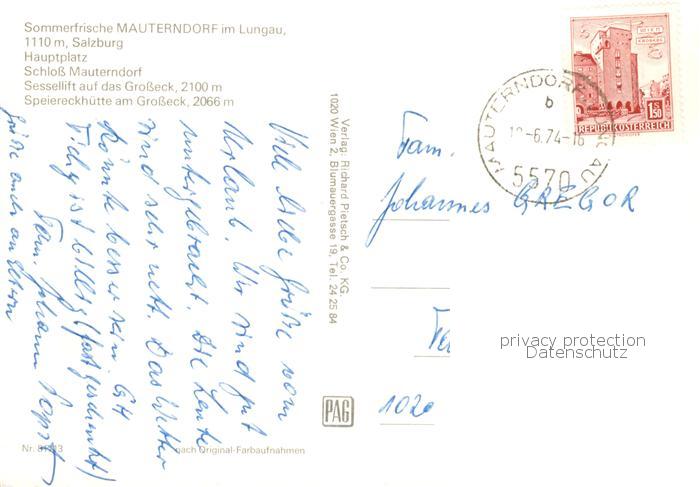 Sommerfrische MAUTERNDORF im Lungau,
1110 m, Salzburg
Hauptplatz
Schloß Mauterndorf
Sessellift auf das Großeck, 2100 m
Speiereckhütte am Großeck, 2066 m
Viele liebe Grüße vom
Urlaub. Wir sind gut
untergebracht. Die Leute
sind sehr nett. Das Wetter
könnte besser sein.
ist billig (fast geschenkt)
Fam. Johann
Grüße auch an
Nr.
nach Original-Farbaufnahmen
Verlag: Richard Pietsch & Co. KG.
1020 Wien 2, Blumauergasse 19, Tel. 24 25 84
PAG
MAUTERNDORF
b
-6.74-16
5570
1.50
REPUBLIK ÖSTERREICH
Fam.
Johannes GREGOR
1020
privacy protection
Datenschutz